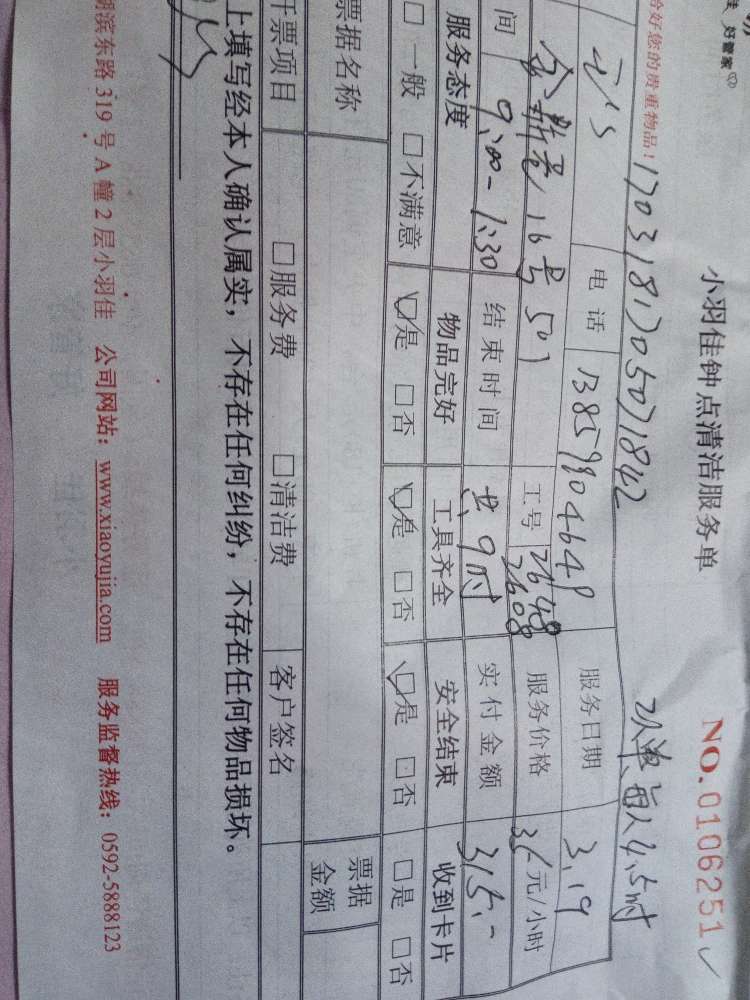 好管家
小羽佳钟点清洁服务单 NO.0106251
好您的贵重物品！ 1703181705071842 2人单、每人4.5时
电话 服务日期 3.19
金新巷16号501 工号 2648 2608 服务价格 35元/小时
间 9:00-1:30 结束时间 共9时 实付金额 315.-
服务态度 物品完好 工具齐全 安全结束 收到卡片
□一般 □不满意 ☑是 □否 ☑是 □否 ☑是 □否 □是 □否
票据名称 票据金额
开票项目 □服务费 □清洁费 客户签名
上填写经本人确认属实，不存在任何纠纷，不存在任何物品损坏。
湖滨东路319号A幢2层小羽佳 公司网站：www.xiaoyujia.com 服务监督热线：0592-5888123